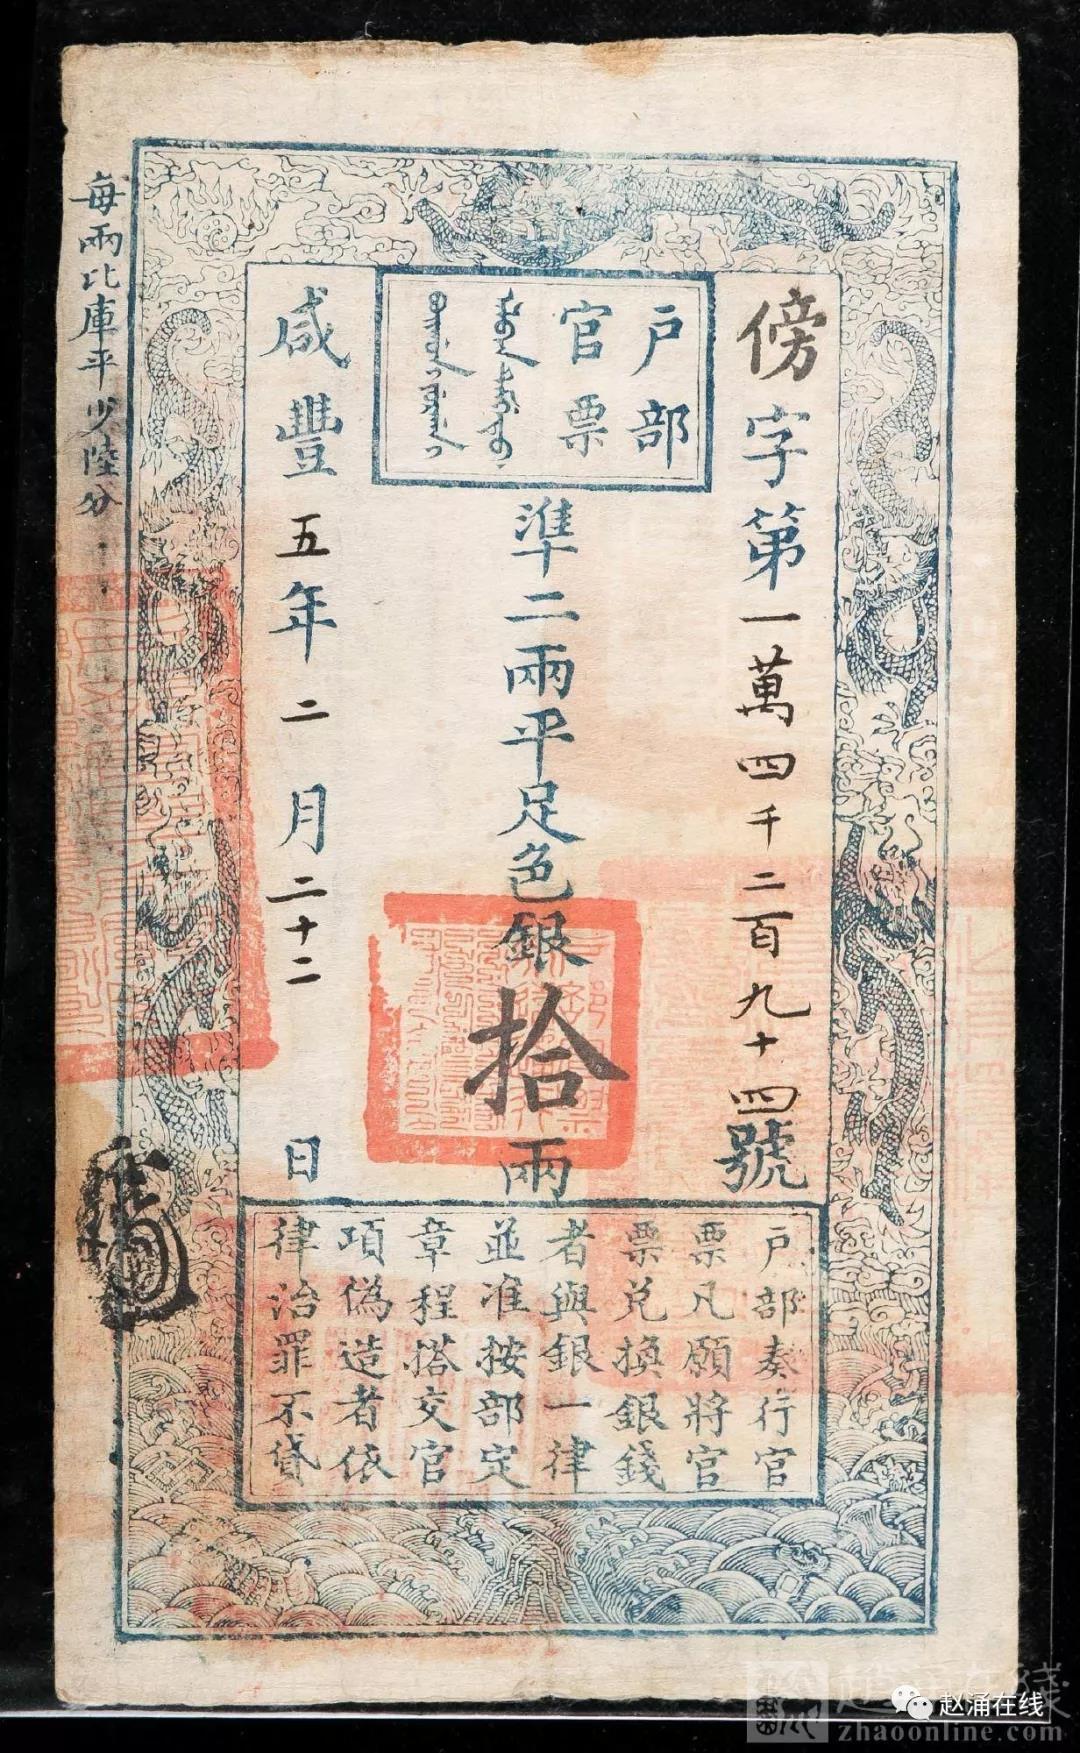 傍字第一萬四千二百九十四號
戶部
官票
準二兩平足色銀拾兩
咸豐五年二月二十二日
每兩比庫平少陸分
戶部奏行官
票凡願將官
票兌換銀錢
者與銀一律
並准按部定
章程搭交官
項偽造者依
律治罪不貸
赵涌在线
赵涌在线
zhaoonline.com